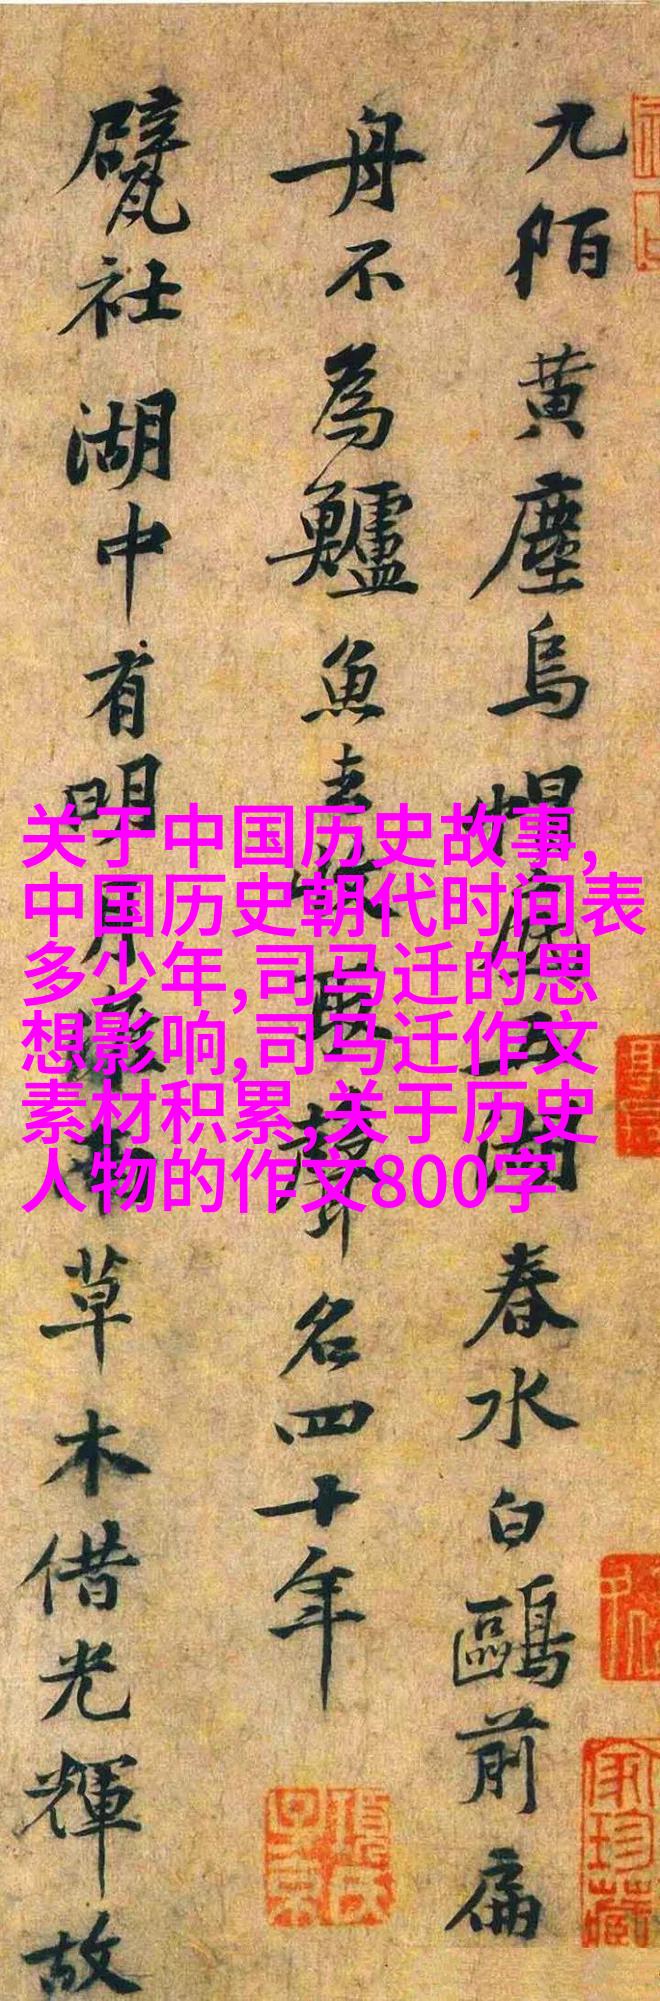 九陌黄塵烏帽底五湖春水白鷗前扁
舟不為鱸魚去收取聲名四十年
甓社湖中有明月淮南草木借光輝故
关于中国历史故事,
中国历史朝代时间表
多少年,司马迁的思
想影响,司马迁作文
素材积累,关于历史
人物的作文800字
項氏
子京
家珍藏